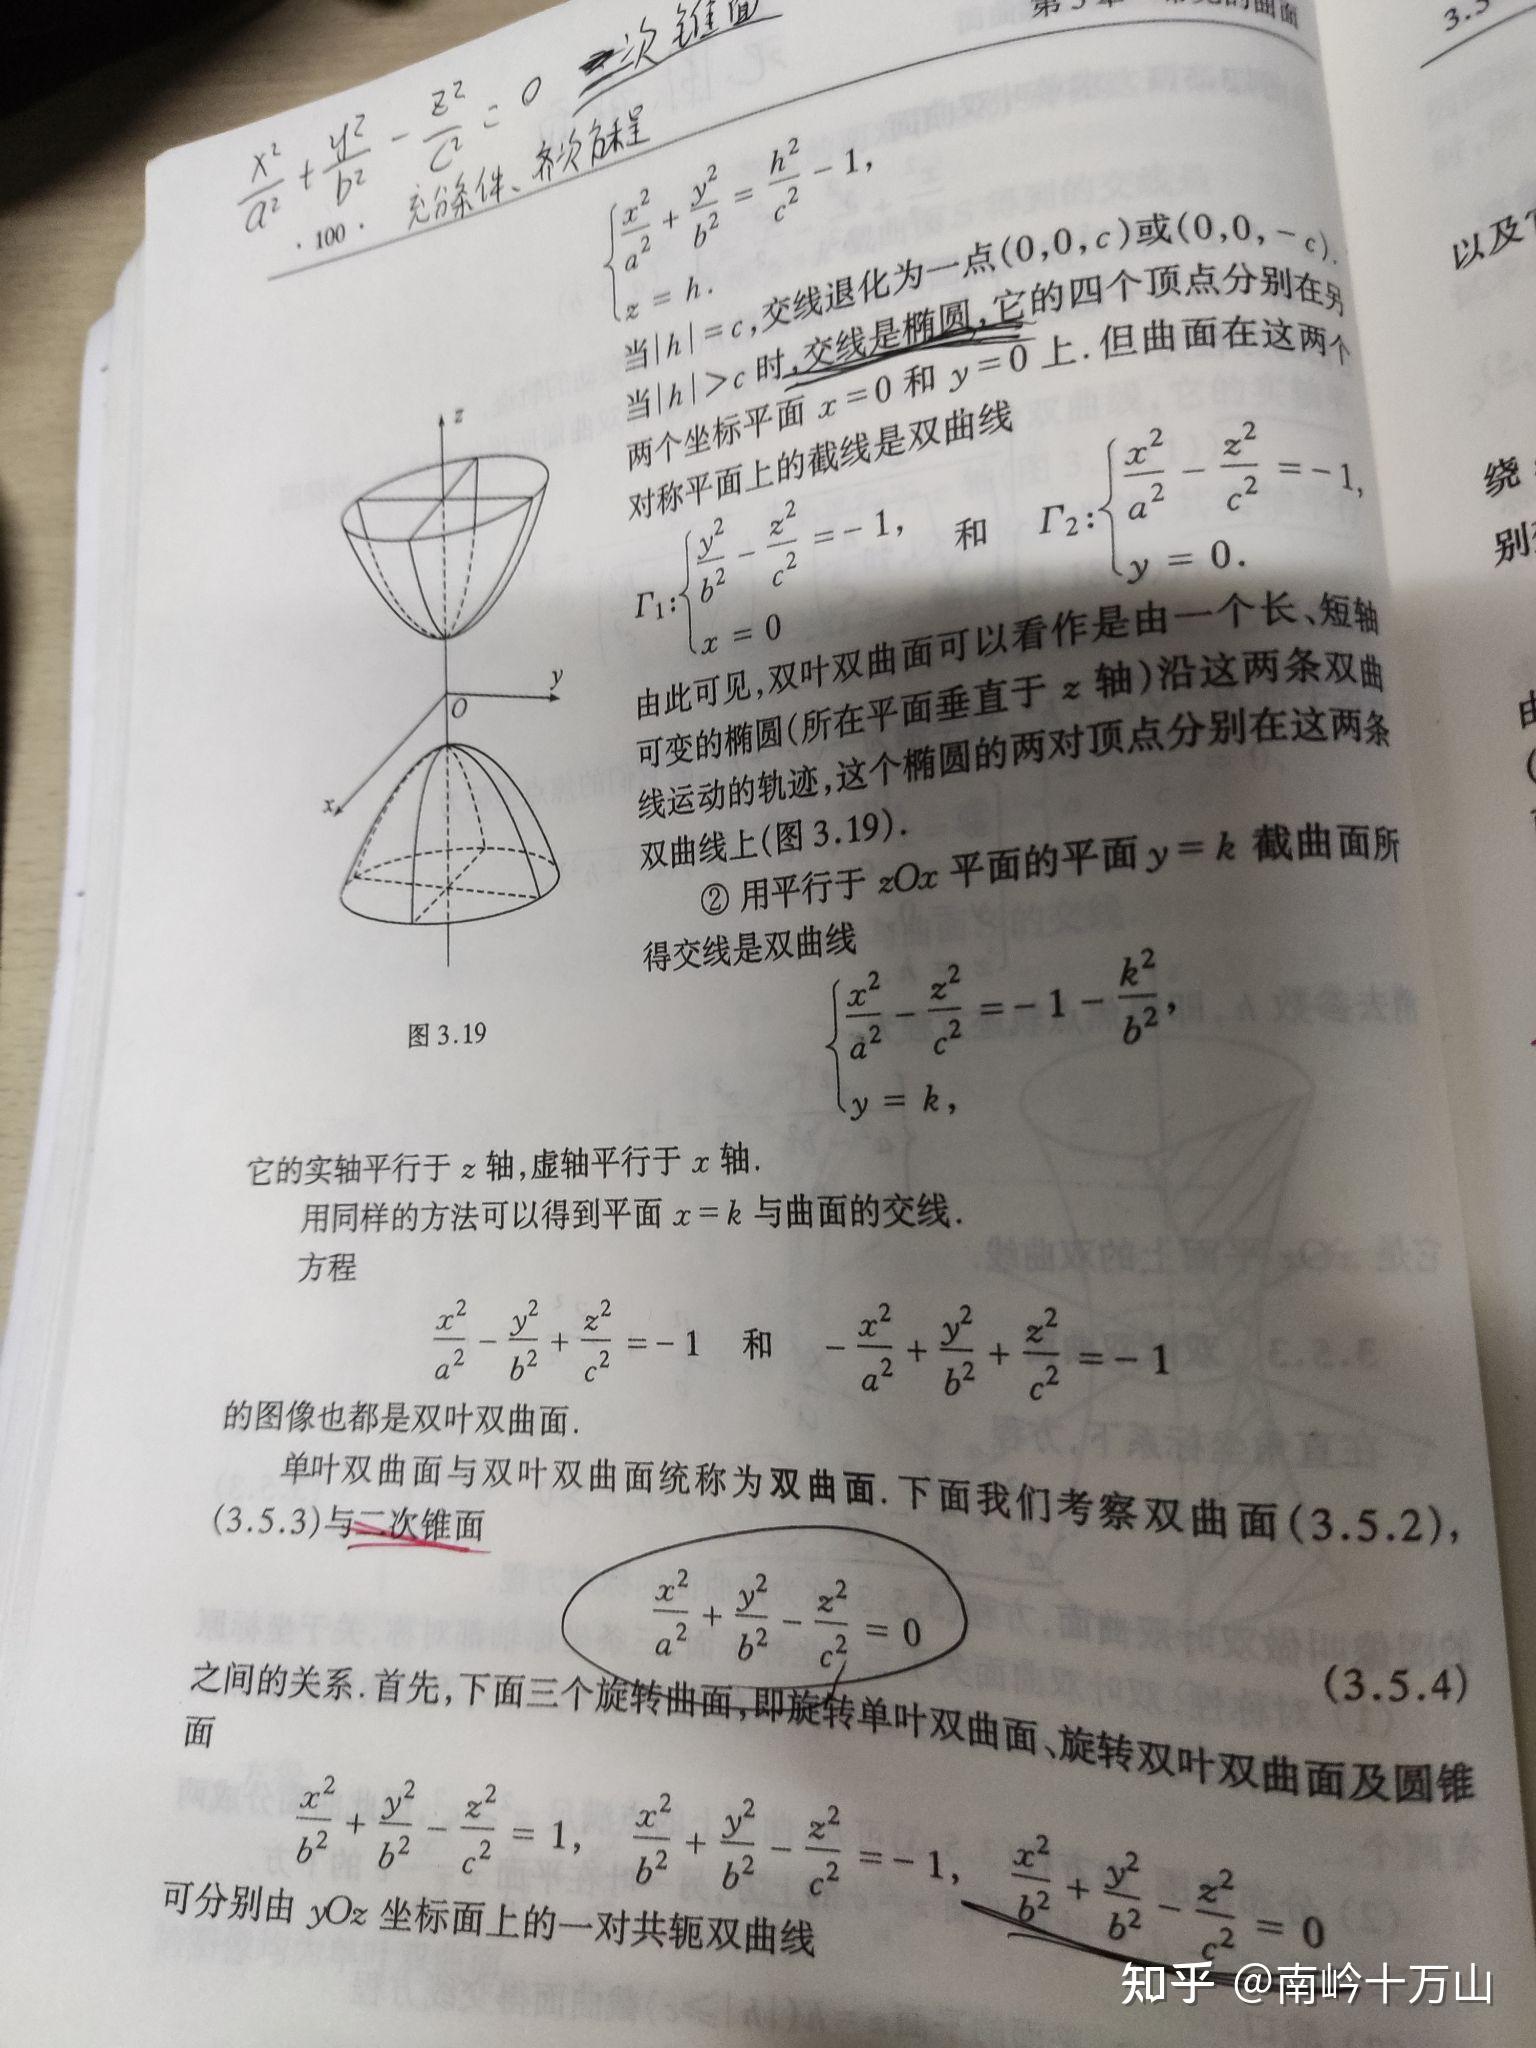 x²/a² + y²/b² - z²/c² = 0 二次锥面
齐次方程
· 100 ·
第3章 常见的曲面
3.5
{ x²/a² + y²/b² = h²/c² - 1,
z = h.
当|h| = c,交线退化为一点(0,0,c)或(0,0,-c).
当|h| > c 时,交线是椭圆,它的四个顶点分别在另
两个坐标平面 x = 0 和 y = 0 上. 但曲面在这两个
对称平面上的截线是双曲线
Γ₁: { y²/b² - z²/c² = -1, x = 0 和 Γ₂: { x²/a² - z²/c² = -1, y = 0.
由此可见,双叶双曲面可以看作是由一个长、短轴
可变的椭圆(所在平面垂直于 z 轴)沿这两条双曲
线运动的轨迹,这个椭圆的两对顶点分别在这两条
双曲线上(图 3.19).
② 用平行于 zOx 平面的平面 y = k 截曲面所
得交线是双曲线
{ x²/a² - z²/c² = -1 - k²/b²,
y = k,
z
y
O
x
图 3.19
它的实轴平行于 z 轴,虚轴平行于 x 轴.
用同样的方法可以得到平面 x = k 与曲面的交线.
方程
x²/a² - y²/b² + z²/c² = -1 和 -x²/a² + y²/b² + z²/c² = -1
的图像也都是双叶双曲面.
单叶双曲面与双叶双曲面统称为双曲面. 下面我们考察双曲面(3.5.2),
(3.5.3)与二次锥面
x²/a² + y²/b² - z²/c² = 0 (3.5.4)
之间的关系. 首先,下面三个旋转曲面,即旋转单叶双曲面、旋转双叶双曲面及圆锥
面
x²/b² + y²/b² - z²/c² = 1, x²/b² + y²/b² - z²/c² = -1, x²/b² + y²/b² - z²/c² = 0
可分别由 yOz 坐标面上的一对共轭双曲线
以及
绕
知乎 @南岭十万山